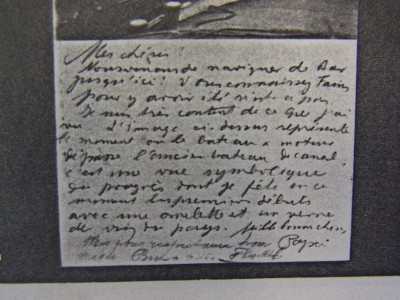 Mes chères!
Nous venons de naviguer de Bar
jusqu'ici! Vous connaissez
pour y avoir été
Je suis très content de ce que j'ai
vu. L'image ci-dessus représente
le moment où le bateau à moteur
dépasse l'ancien bateau de canal.
C'est une vue symbolique
du progrès dont je fête en ce
moment les premiers débuts
avec une omelette et un verre
de vin du pays. Mille bonnes choses,
Papi
Mes plus respectueux